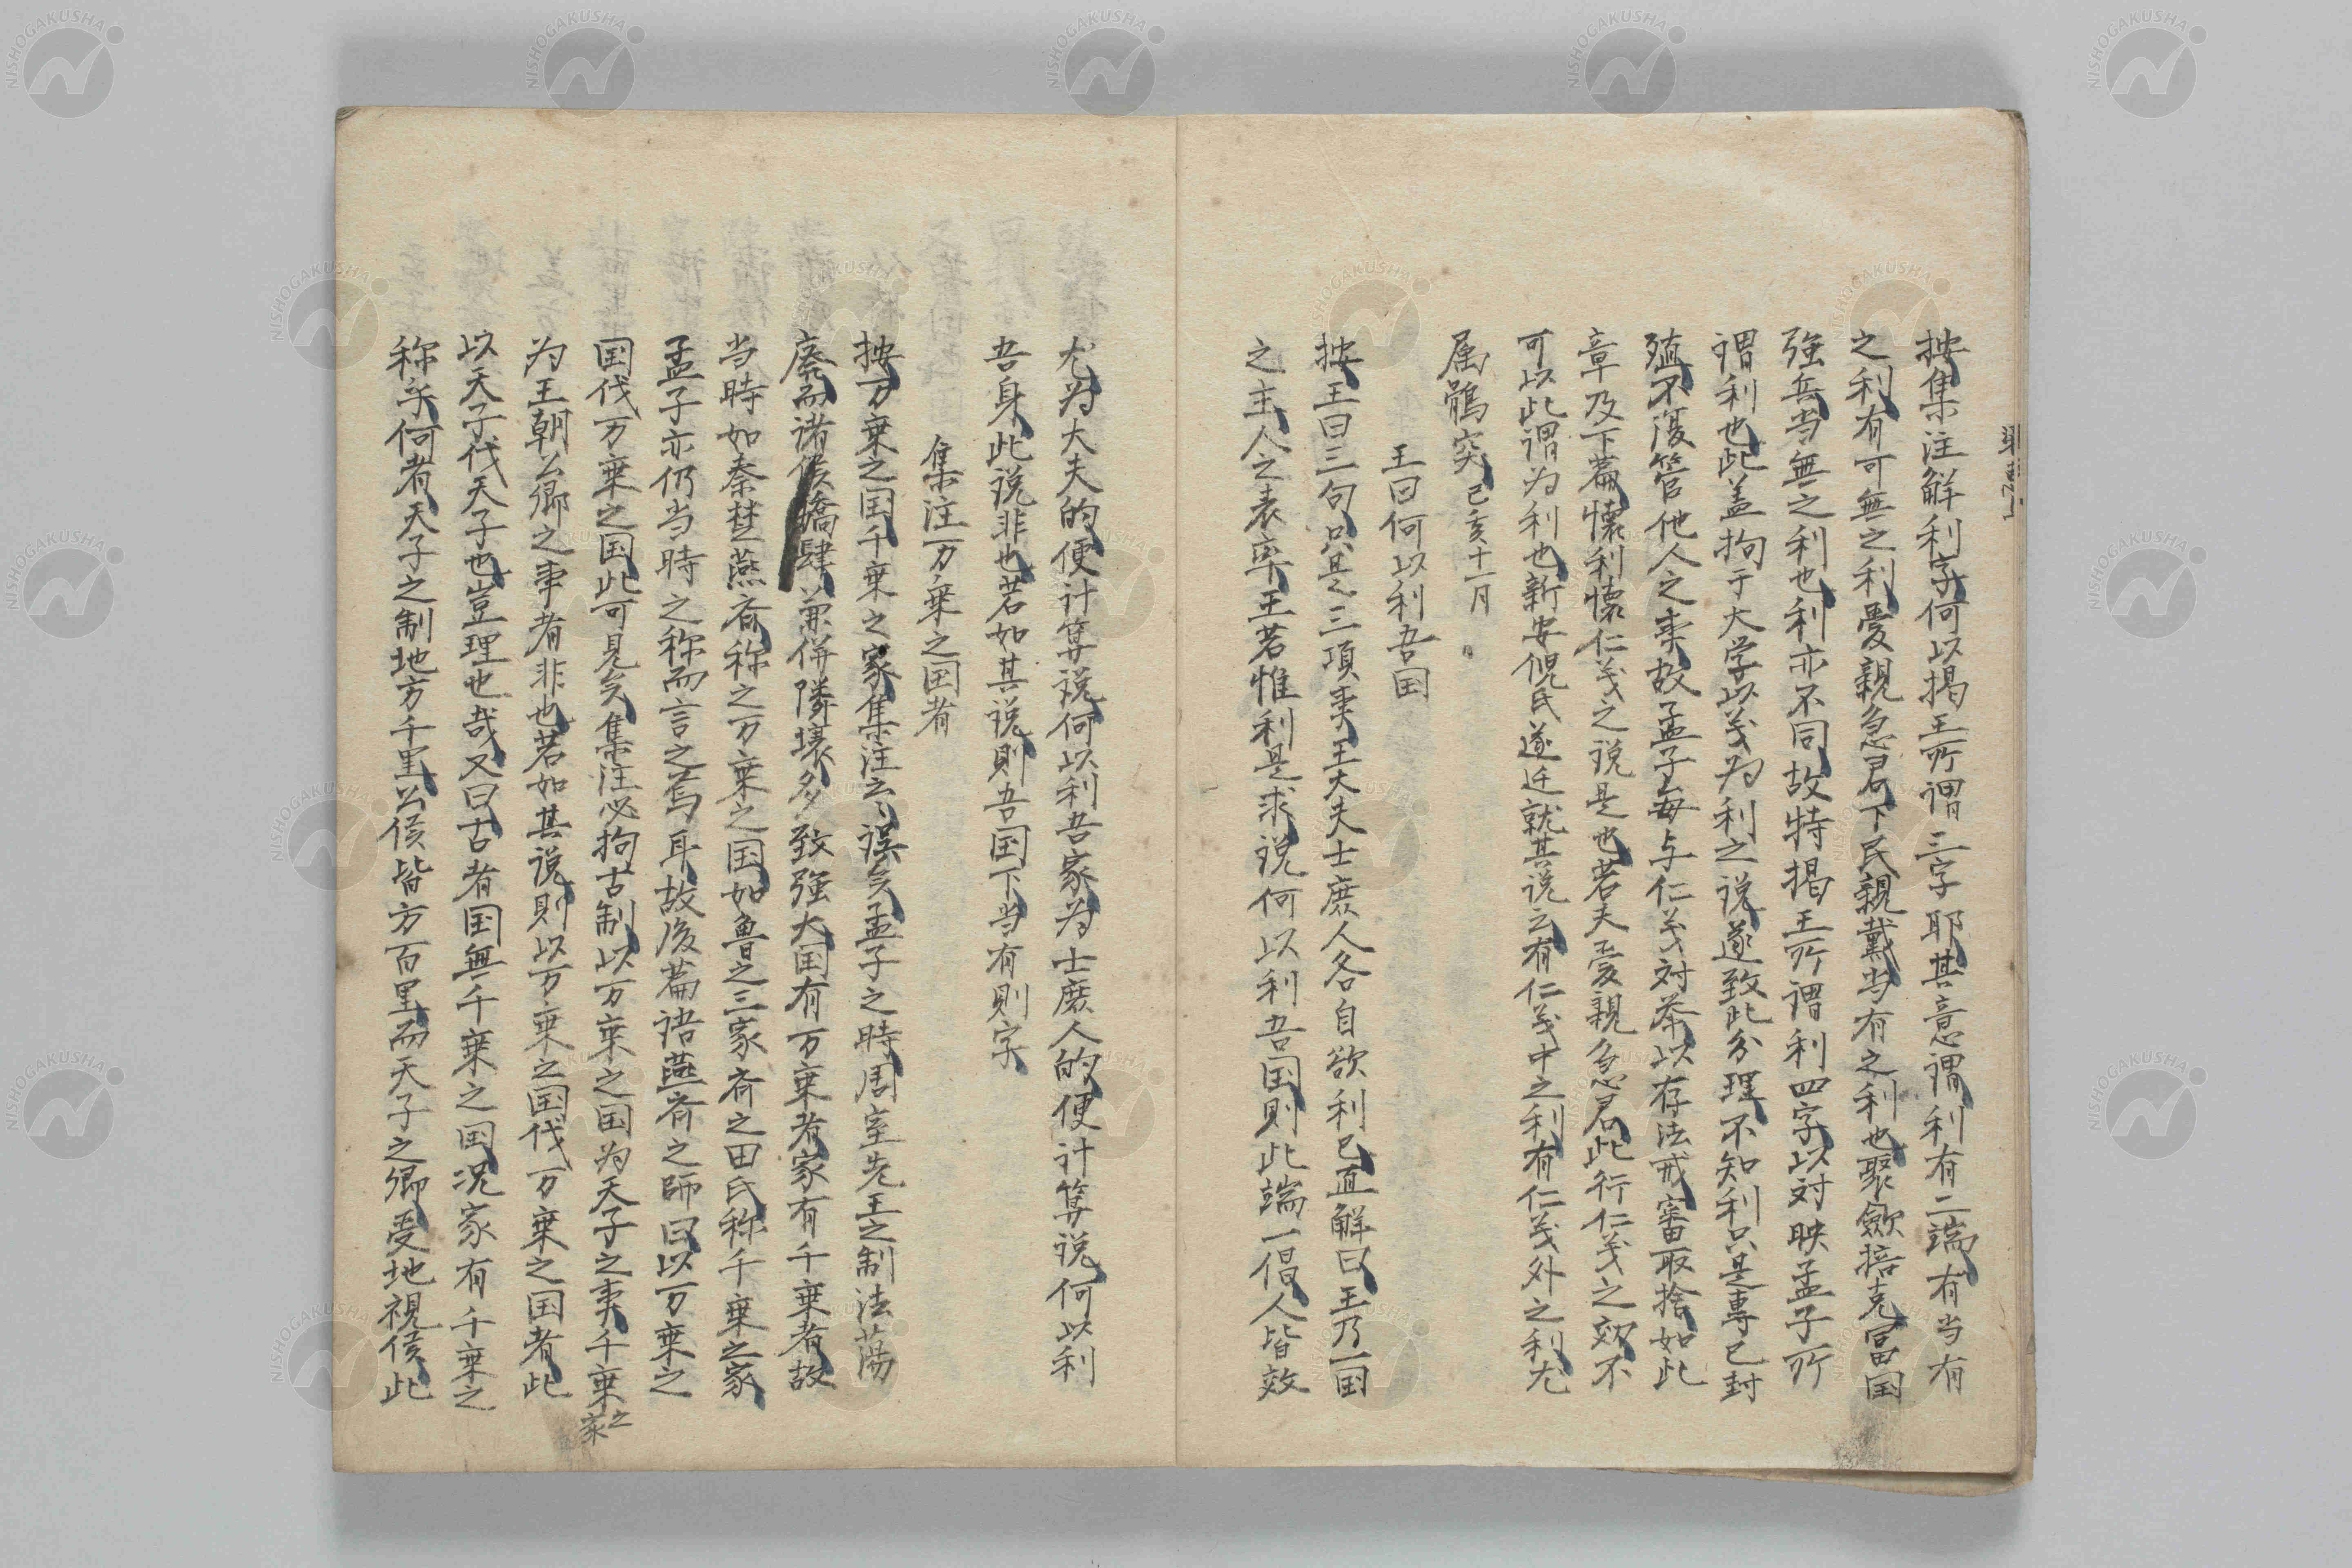 按集注解利字何以揭王所謂三字耶其意謂利有二端有当有
之利有可無之利愛親急君下民親戴当有之利也聚斂掊克冨国
強兵当無之利也利亦不同故特揭王所謂利四字以対映孟子所
謂利也此盖拘于大学以义為利之说遂致此分理不知利只是専已封
殖不復管他人之事故孟子每与仁义対举以存法戒審取捨如此
章及下篇懐利懐仁义之说是也若夫愛親急君此行仁义之効不
可以此謂为利也新安倪氏遂迁就其说云有仁义中之利有仁义外之利尤
属鶻突 己亥十一月
王曰何以利吾国
按王曰三句只是三項事王大夫士庶人各自欲利已直解曰王乃一国
之主人之表率王若惟利是求说何以利吾国則此端一倡人皆效
尤为大夫的便计算说何以利吾家为士庶人的便计算说何以利
吾身此说非也若如其说則吾国下当有則字
集注万乗之国者
按万乗之国千乗之家集注云〻误矣孟子之時周室先王之制法蕩
廃而诸侯驕肆兼併隣壌多致強大国有万乗者家有千乗者故
当時如秦楚燕斉称之万乗之国如魯之三家斉之田氏称千乗之家
孟子亦仍当時之称而言之焉耳故後篇语燕斉之師曰以万乗之
国伐万乗之国此可見矣集注必拘古制以万乗之国为天子之事千乗之家
为王朝公卿之事者非也若如其说則以万乗之国伐万乗之国者此
以天子伐天子也豈理也哉又曰古者国無千乗之国况家有千乗之
称乎何者天子之制地方千里公侯皆方百里而天子之卿受地視侯此